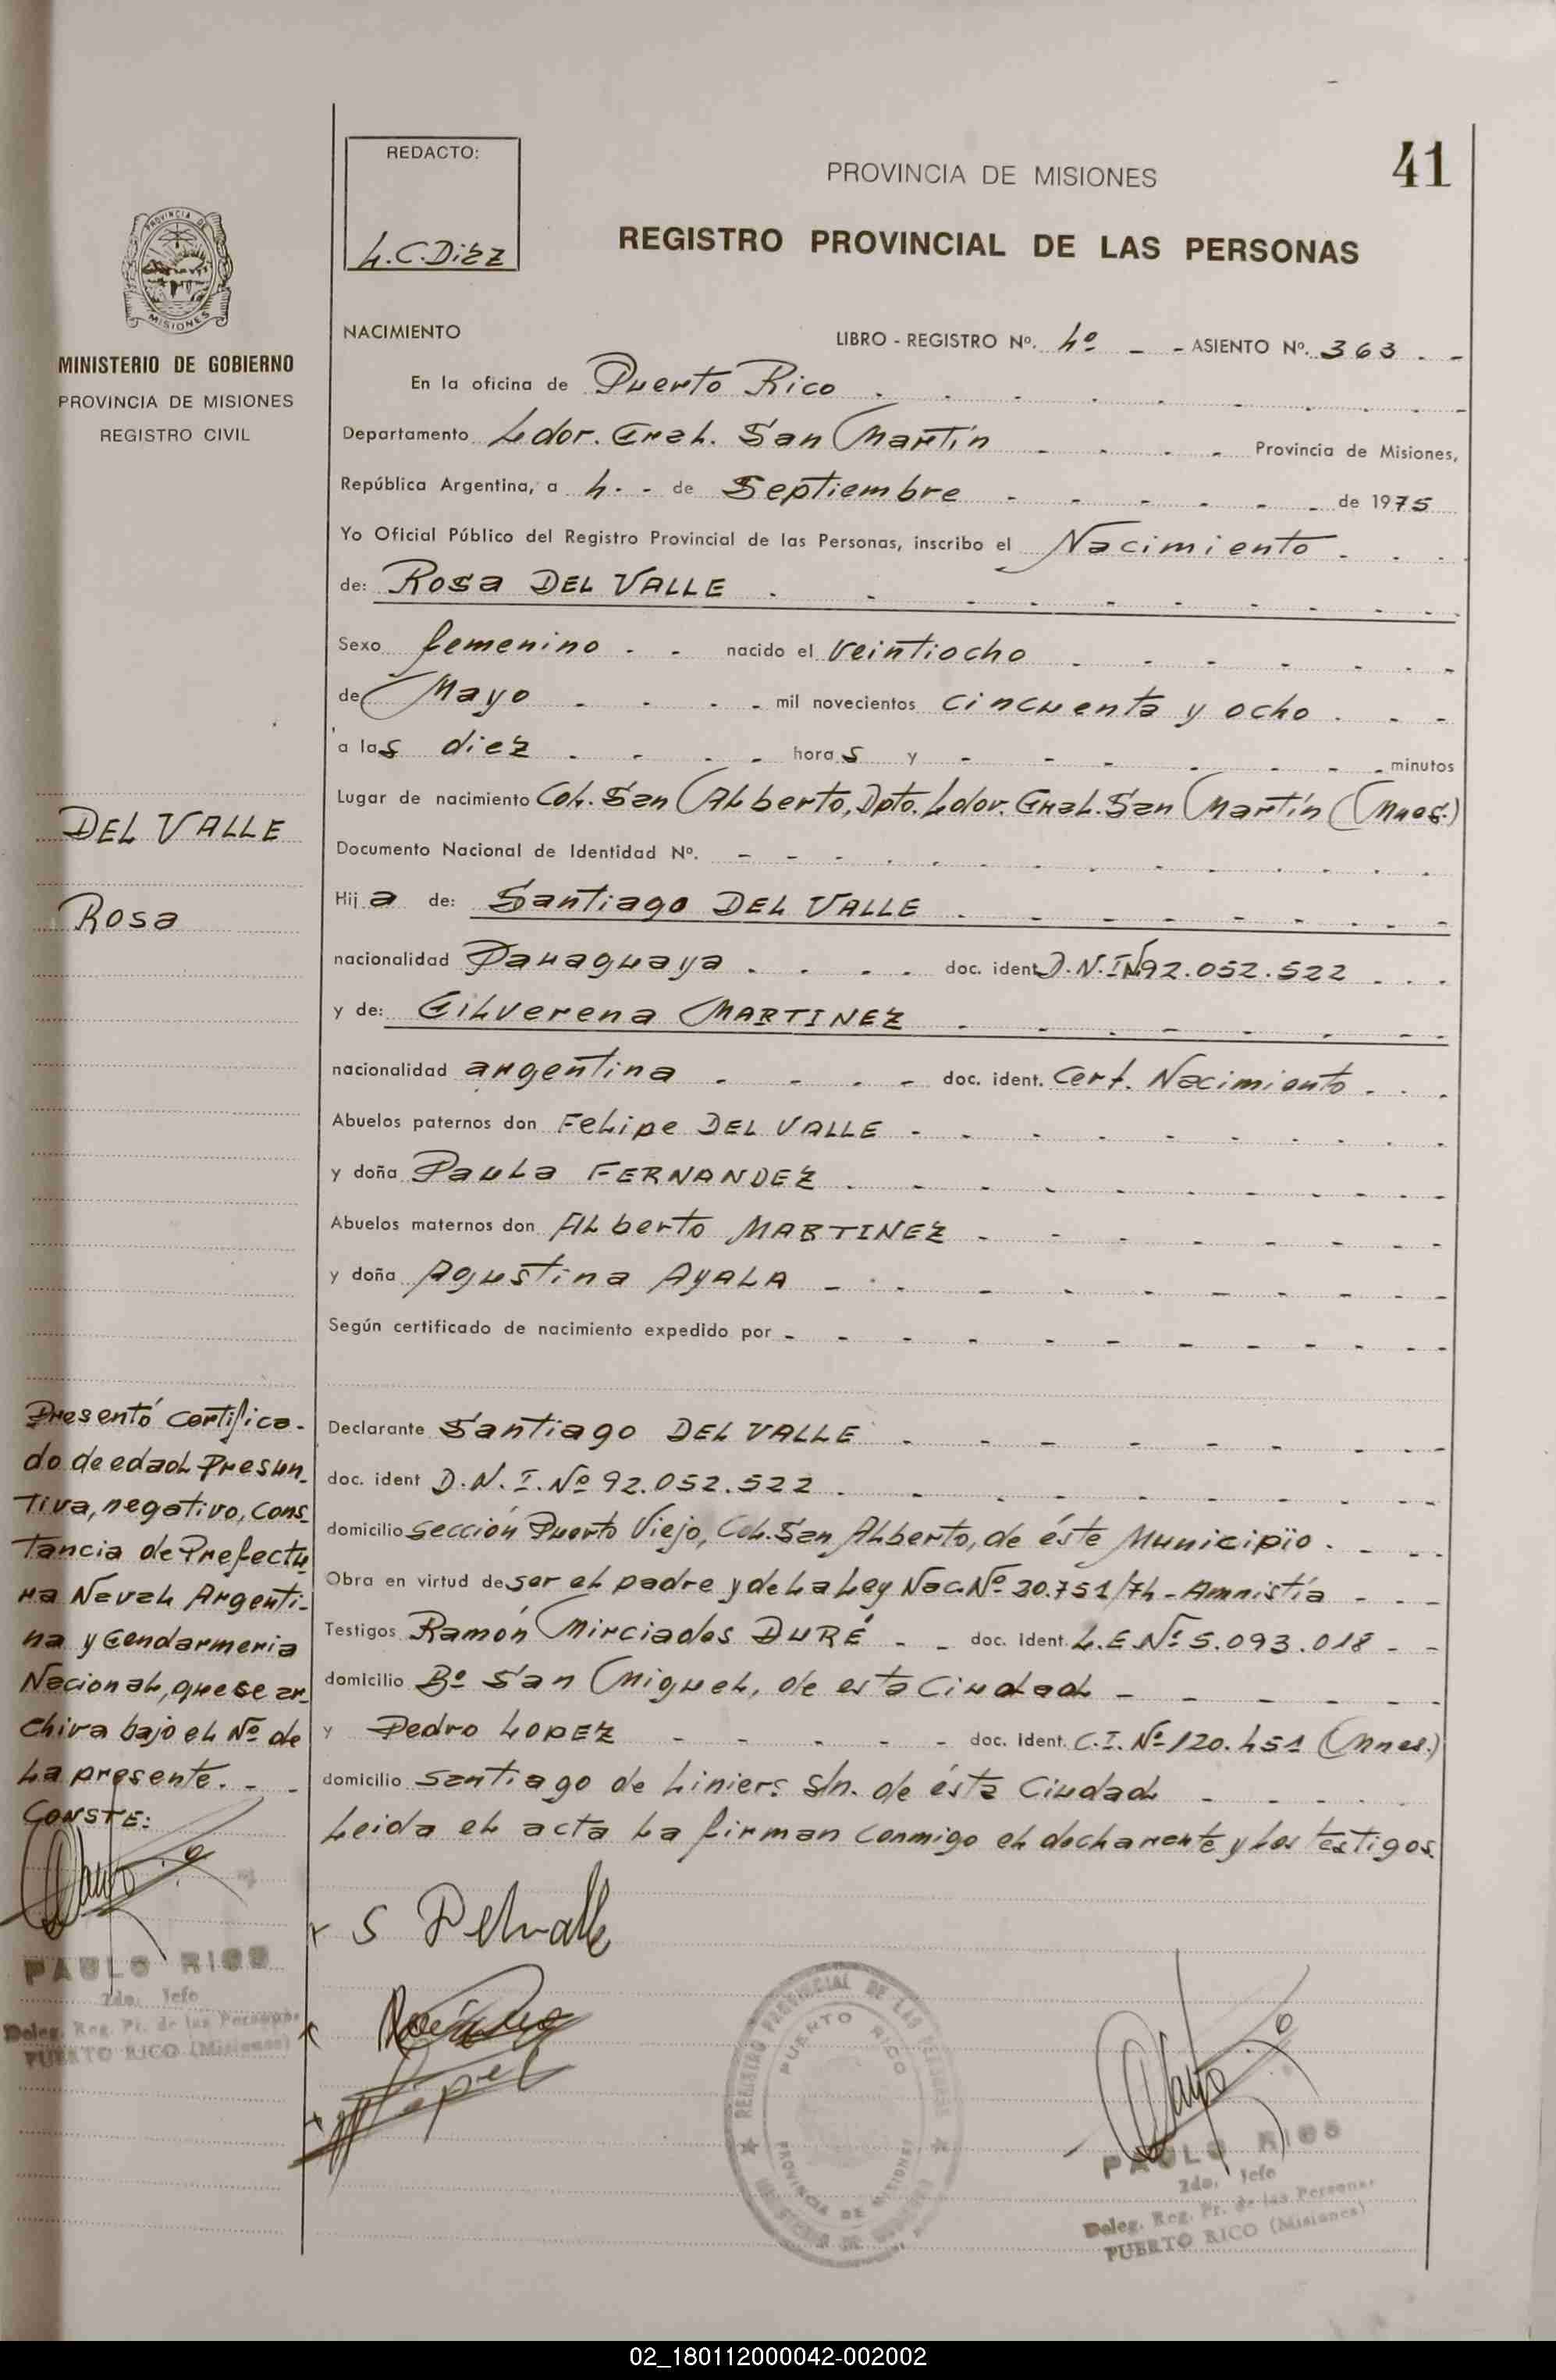 REDACTO:
L.C.Diez
PROVINCIA DE MISIONES
41
REGISTRO PROVINCIAL DE LAS PERSONAS
PROVINCIA DE
MISIONES
MINISTERIO DE GOBIERNO
PROVINCIA DE MISIONES
REGISTRO CIVIL
NACIMIENTO
LIBRO - REGISTRO Nº. 4º - - ASIENTO Nº. 363 . -
En la oficina de Puerto Rico
Departamento Ldor. Gral. San Martín - - - - Provincia de Misiones,
República Argentina, a 4. - de Septiembre - - - - - - de 1975
Yo Oficial Público del Registro Provincial de las Personas, inscribo el Nacimiento
de: Rosa DEL VALLE
Sexo femenino . - nacido el veintiocho
de Mayo - - - - mil novecientos cincuenta y ocho
a las diez - - - - horas y - - - - - - minutos
Lugar de nacimiento Col. San Alberto, Dpto. Ldor. Gral. San Martín (Mnes.)
Documento Nacional de Identidad Nº.
Hija de: Santiago DEL VALLE
nacionalidad Paraguaya . . . . doc. ident D.N.I.Nº92.052.522
y de: Gilverena MARTINEZ
nacionalidad argentina - - - - doc. ident. Cert. Nacimiento
Abuelos paternos don Felipe DEL VALLE
y doña Paula FERNANDEZ
Abuelos maternos don Alberto MARTINEZ
y doña Agustina AYALA
Según certificado de nacimiento expedido por
Declarante Santiago DEL VALLE
doc. ident D.N.I.Nº 92.052.522
domicilio sección Puerto Viejo, Col. San Alberto, de éste Municipio.
Obra en virtud de ser el padre y de La Ley Nac.Nº 20.751/74 - Amnistía
Testigos Ramón Mirciades DURÉ - - doc. Ident. L.E.Nº 5.093.018 - -
domicilio Bº San Miguel, de esta Ciudad
y Pedro LOPEZ - - - - - doc. Ident. C.I. Nº 120.451 (Mnes.)
domicilio Santiago de Liniers s/n. de ésta Ciudad
Leida el acta La firman conmigo el declarante y Los testigos.
DEL VALLE
Rosa
Presentó certifica-
do de edad Presun-
tiva, negativo, Cons-
tancia de Prefectu-
ra Naval Argenti-
na y Gendarmeria
Nacional, que se ar-
chiva bajo el Nº de
La presente. - -
CONSTE:
PAULO RIOS
2do. Jefe
Deleg. Reg. Pr. de las Personas
PUERTO RICO (Misiones)
S Delvalle
REGISTRO PROVINCIAL DE LAS PERSONAS
PUERTO RICO
PROVINCIA DE MISIONES
PAULO RIOS
2do. Jefe
Deleg. Reg. Pr. de las Personas
PUERTO RICO (Misiones)
02_180112000042-002002